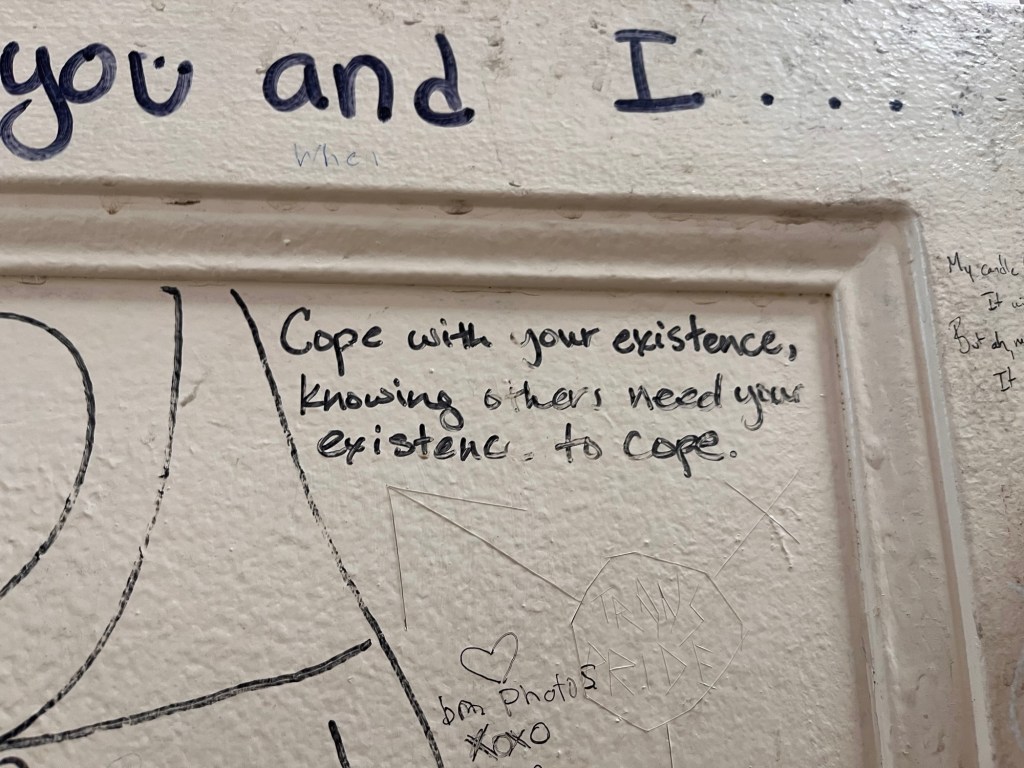 you and I...
Cope with your existence,
knowing others need your
existence to cope.
TRANS
PRIDE
bm Photos
XOXO
My candle
It
But ah, m
It